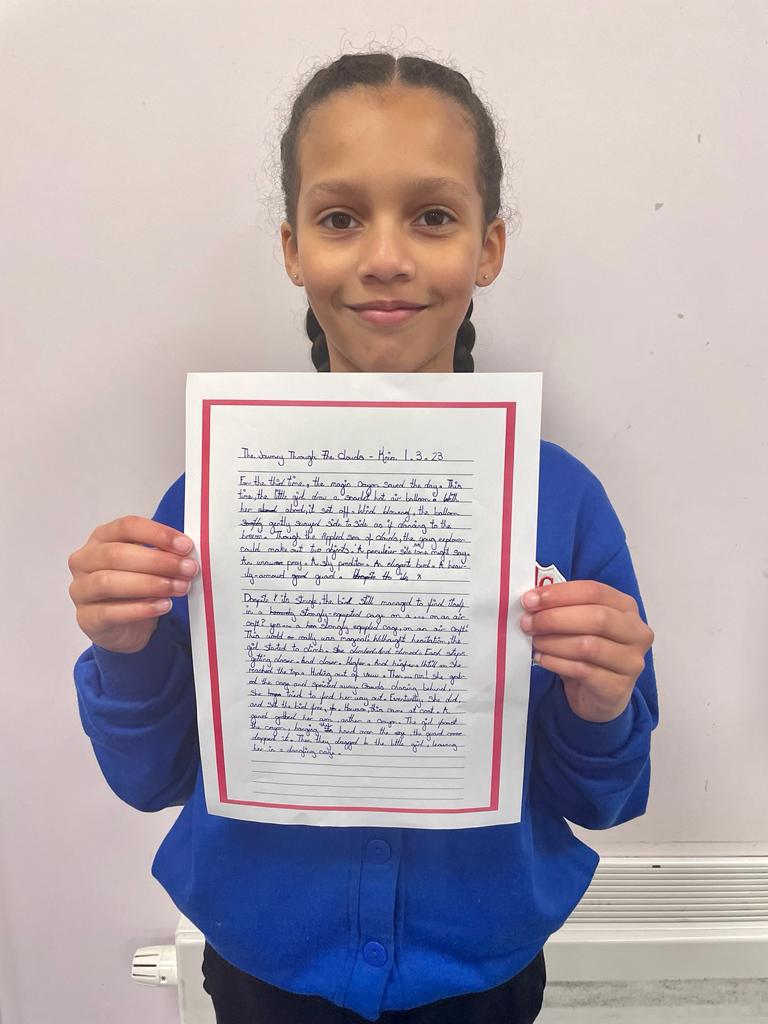 The Journey Through The Clouds - 1.3.23
For the third time, the magic crayon saved the day. This
time, the little girl drew a scarlet hot air balloon. With
her aboard, it set off. Wind blowing, the balloon
gently swayed side to side as if dancing to the
breeze. Through the rippled sea of clouds, the young explorer
could make out two objects. A peculier site one might say.
the unaware prey. A sly preditor. An elegant bird. A heavi-
ly-armourd guard.
Despite it its strugle, the bird still managed to find itself
in a strongly-equipted cage on a... on an air
craft? yes... a strongly equipted cage, on an air craft!
This world really was magical! Without hesitation, the
girl started to climb. She climbed. And climed. Each step
getting closer. And closer. Higher. And higher. Until she
reached the top. Hiding out of view. Then... run! she grab-
ed the cage and sprinted away. Guards chasing behind,
she tried to find her way out. Eventually, she did,
and set the bird free, . However this came at cost. A
guard grabed her arm, another a crayon. The girl
the crayon, banging hand over the the guard
dropped it. Then they dragged the little girl, leaving
her in a dangling cage.